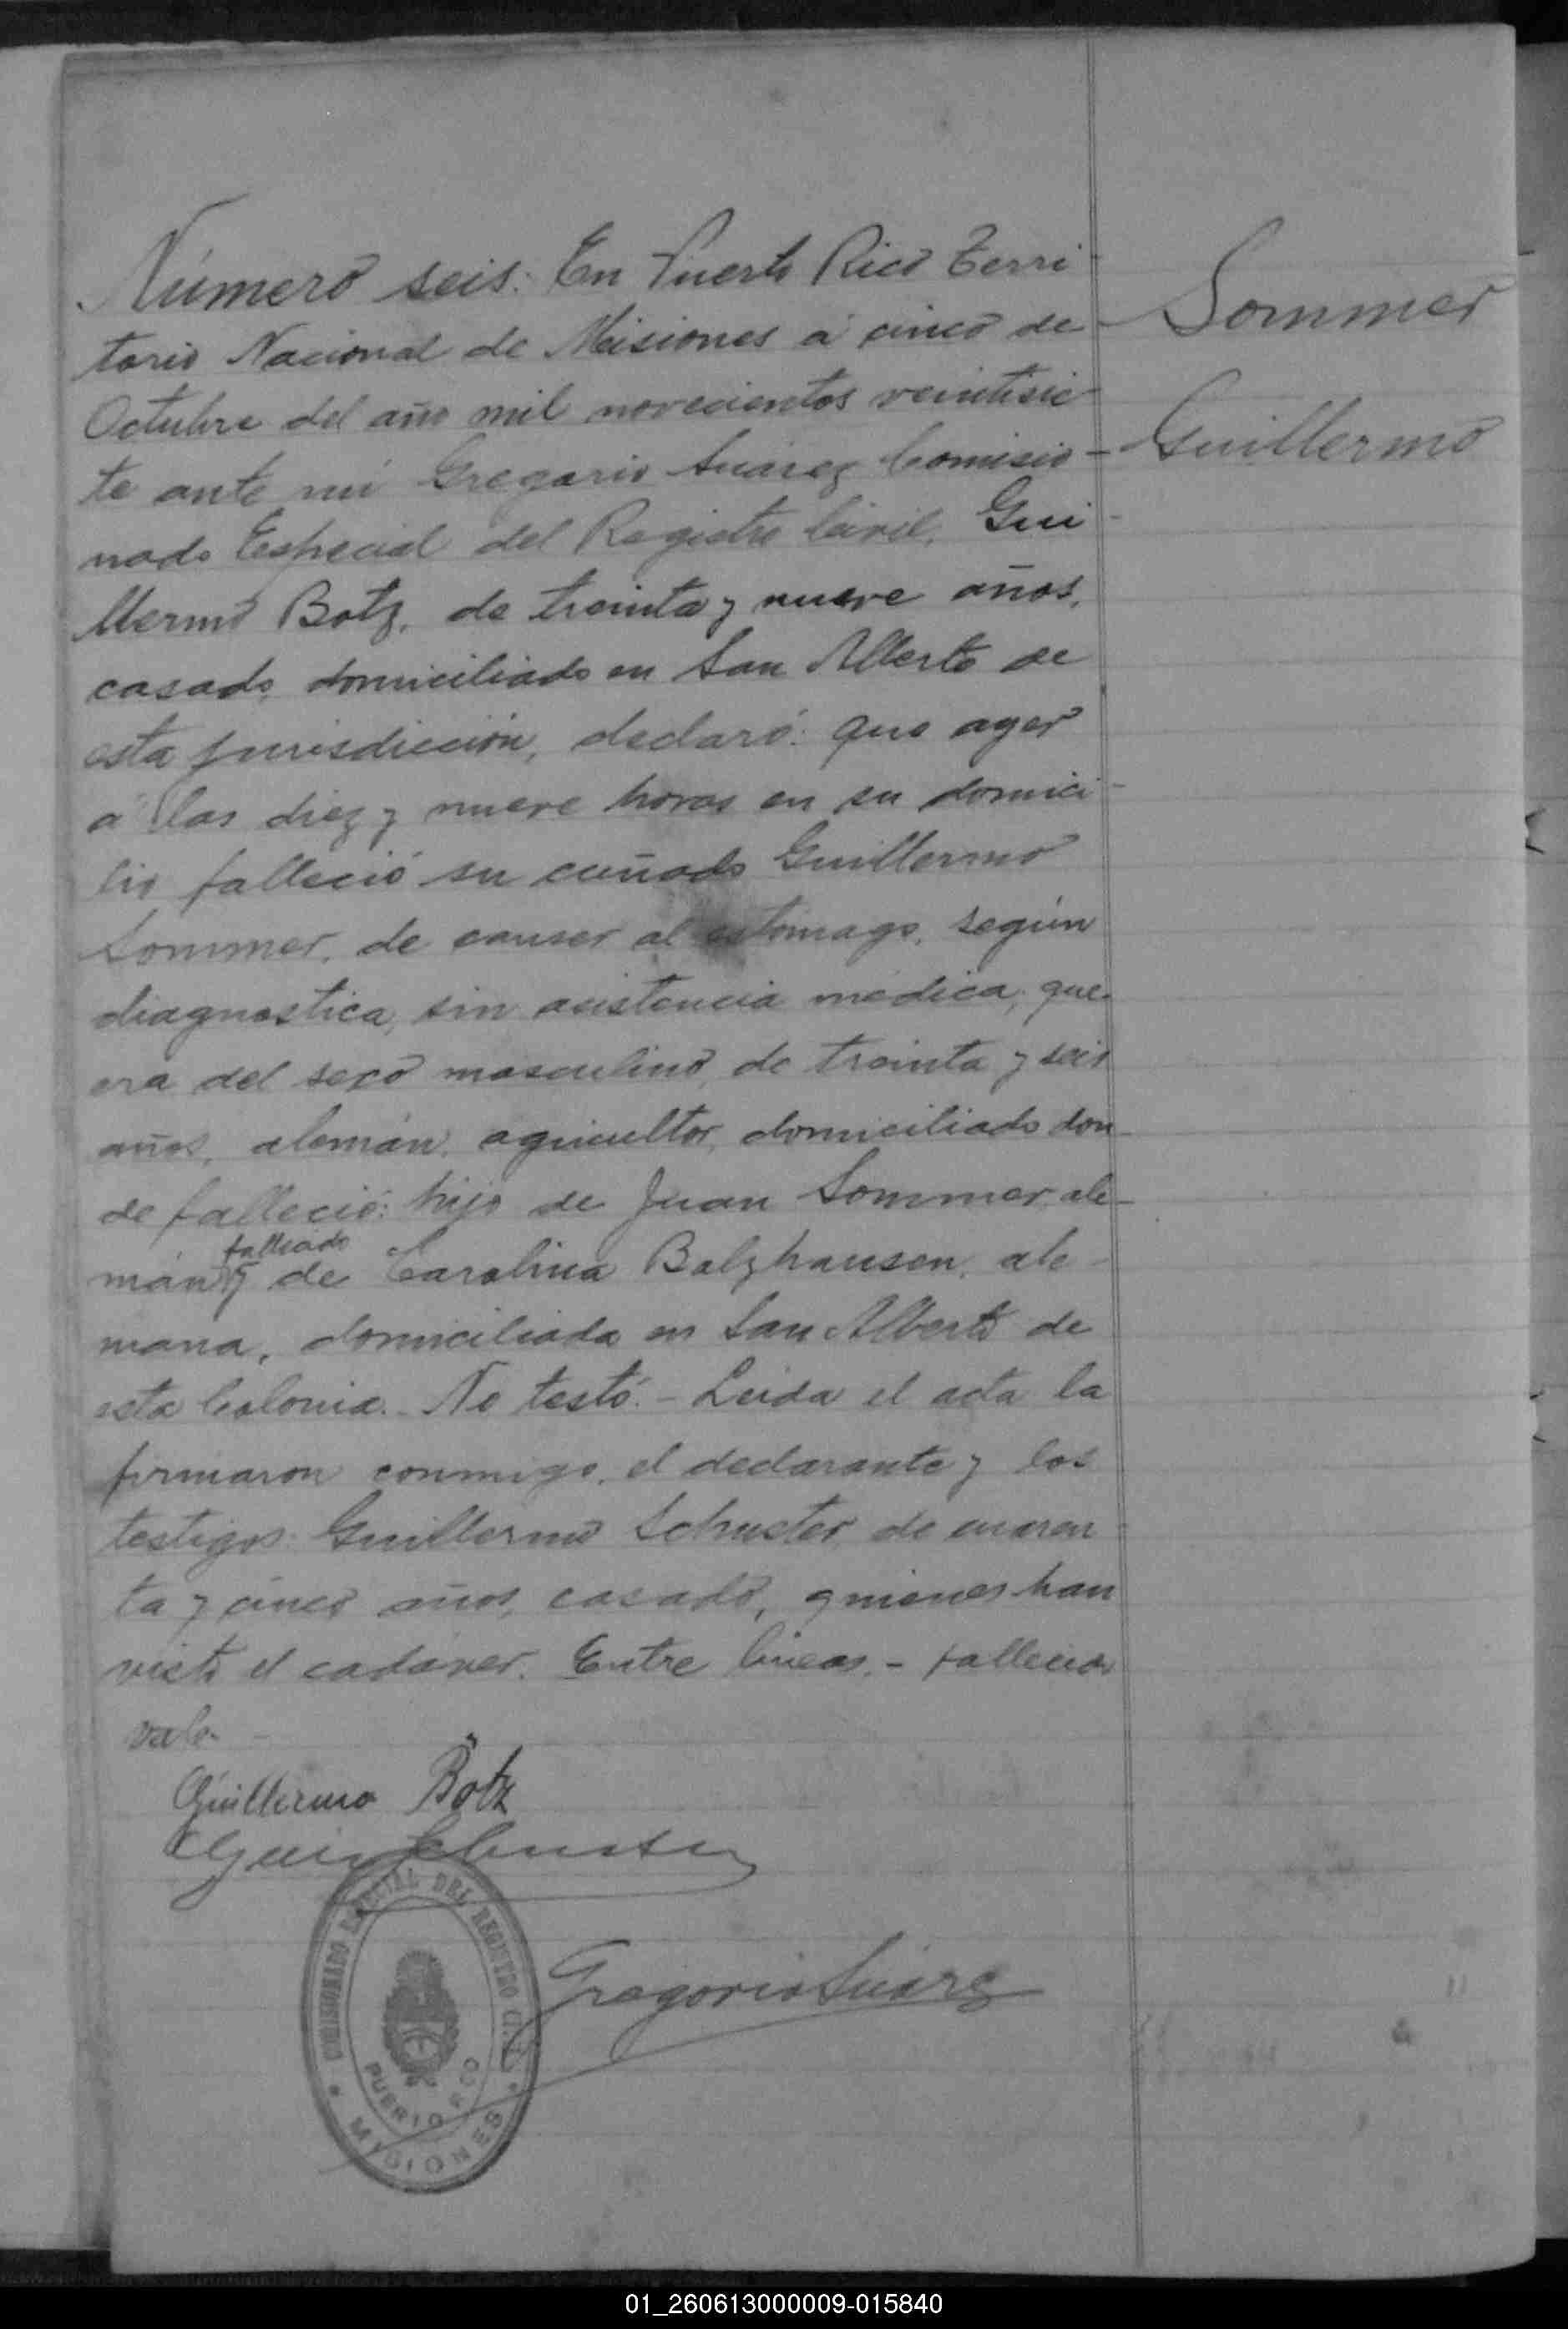 Número seis. En Puerto Rico Terri-
torio Nacional de Misiones á cinco de
Octubre del año mil novecientos veintisie-
te ante mí Gregorio Suárez Comisio-
nado Especial del Registro Civil, Gui-
llermo Botz, de treinta y nueve años,
casado, domiciliado en San Alberto de
esta jurisdicción, declaró: que ayer
á las diez y nueve horas en su domici-
lio falleció su cuñado Guillermo
Sommer, de cancer al estómago, según
diagnostica, sin asistencia médica, que
era del sexo masculino, de treinta y seis
años, alemán, agricultor, domiciliado don-
de falleció: hijo de Juan Sommer, ale-
fallecido
mán y de Carolina Balzhausen, ale-
mana, domiciliada en San Alberto de
esta Colonia. No testó. - Leida el acta la
firmaron conmigo, el declarante y los
testigos: Guillermo Schuster, de cuaren-
ta y cinco años, casado, quienes han
visto el cadáver. Entre líneas. - fallecido
vale.
Sommer
Guillermo
Guillermo Botz
Gregorio Suárez
COMISIONADO ESPECIAL DEL REGISTRO CIVIL
PUERTO RICO
MISIONES
01_260613000009-015840